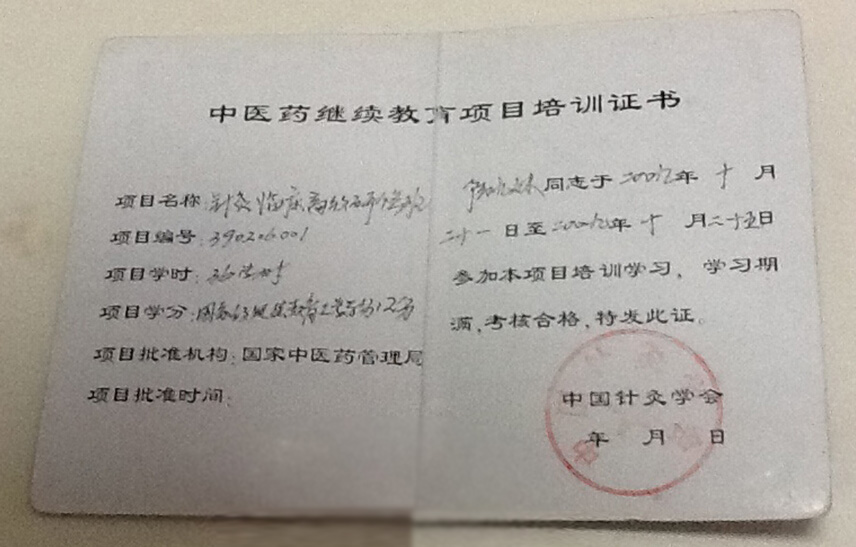 中医药继续教育项目培训证书
项目名称:针灸临床高级研修班
项目编号:390206001
项目学时:
项目学分:国家级继续教育I类学分12分
项目批准机构:国家中医药管理局
项目批准时间:
同志于 年 十 月
二十一 日至 年 十 月二十五日
参加本项目培训学习，学习期
满,考核合格,特发此证。
中国针灸学会
年 月 日